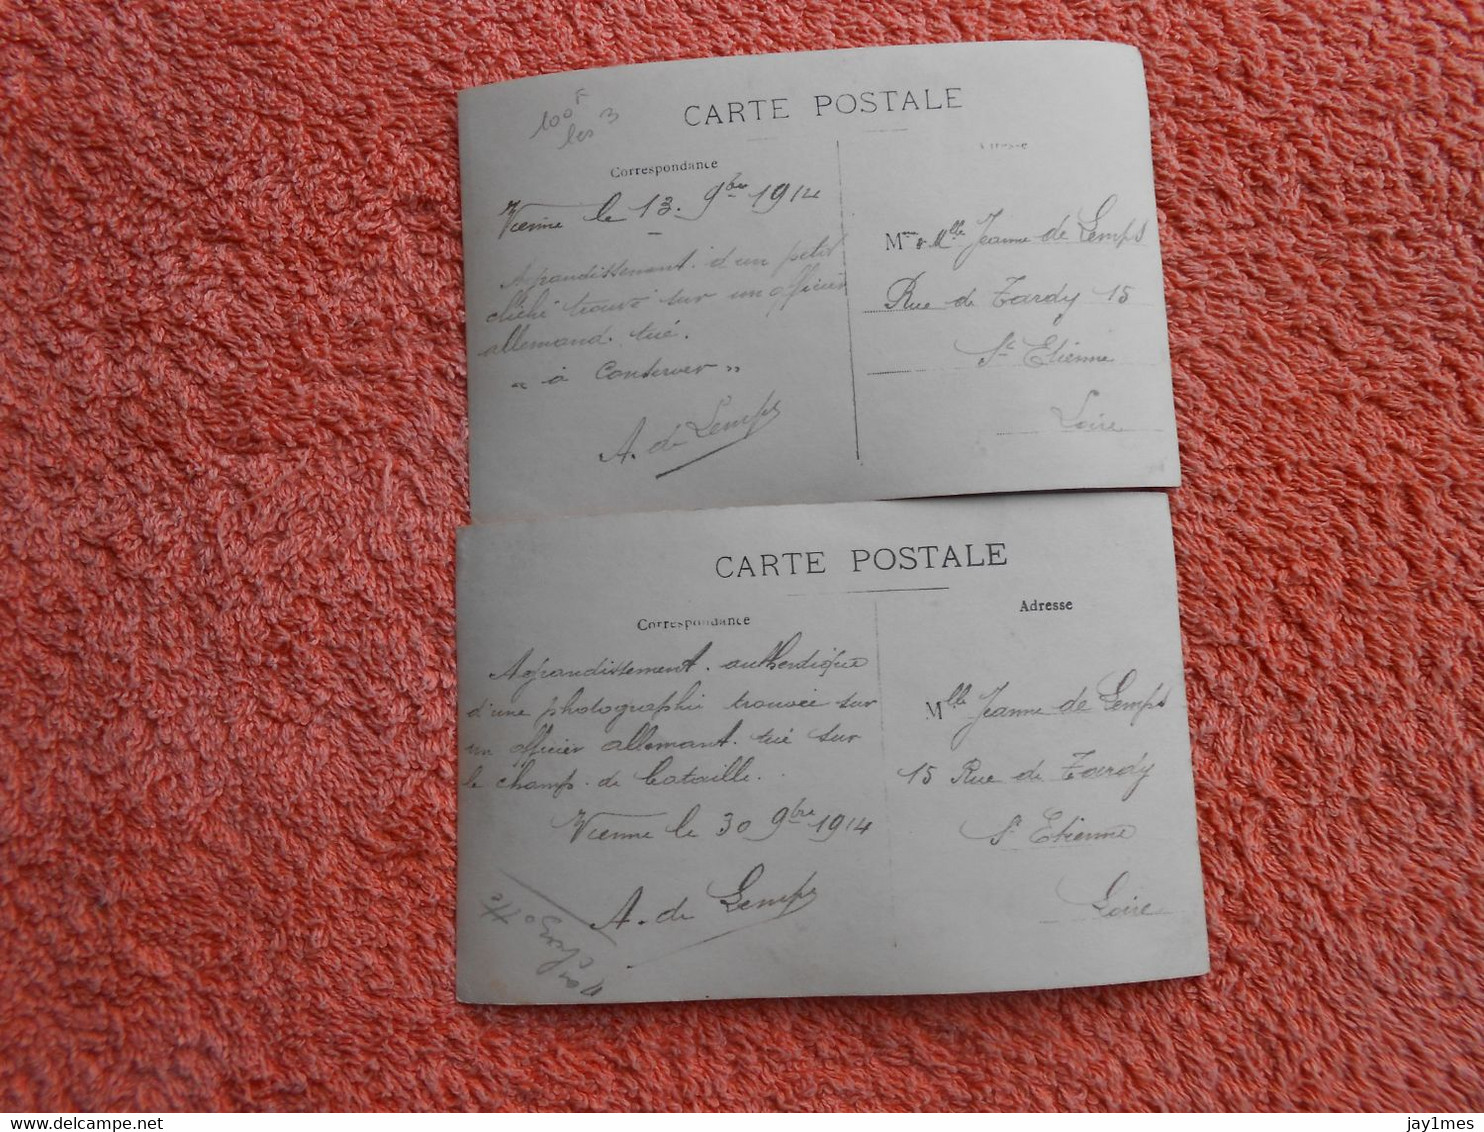 100 F
les 3
CARTE POSTALE
Correspondance
Vienne le 13. 9bre 1914
Agrandissement d'un petit
cliché trouvé sur un officier
allemand tué.
" à conserver "
A. de Lemps
Adresse
Mme & Mlle Jeanne de Lemps
Rue de Tardy 15
St Etienne
Loire
CARTE POSTALE
Correspondance
Agrandissement authentique
d'une photographie trouvée sur
un officier allemant tué sur
le champ de bataille.
Vienne le 30 9bre 1914
A. de Lemps
Adresse
Mlle Jeanne de Lemps
15 Rue de Tardy
St Etienne
Loire
jay1mes